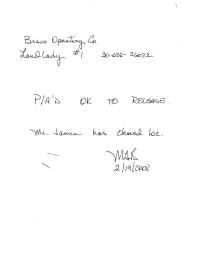 Bravo Operating Co.
Landlady #1 30-025-26022
P/A'D OK TO RELEASE.
Mr. has cleaned loc.
2/19/2008